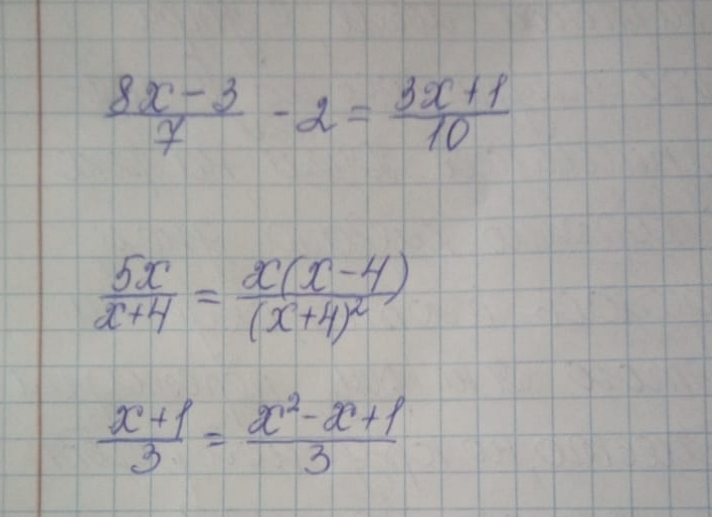 (8x - 3)/7 - 2 = (3x + 1)/10
5x/(x+4) = x(x-4)/(x+4)²
(x+1)/3 = (x² - x + 1)/3